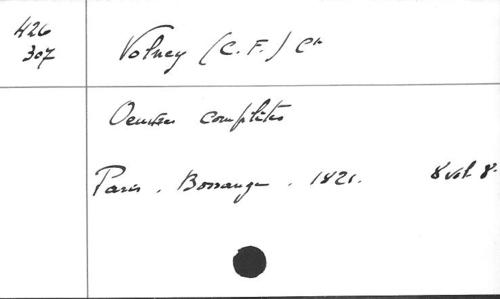 426
307
Volney (C. F.) Cte
Oeuvres complètes
Paris. Bossange. 1821. 8 vol. 8°